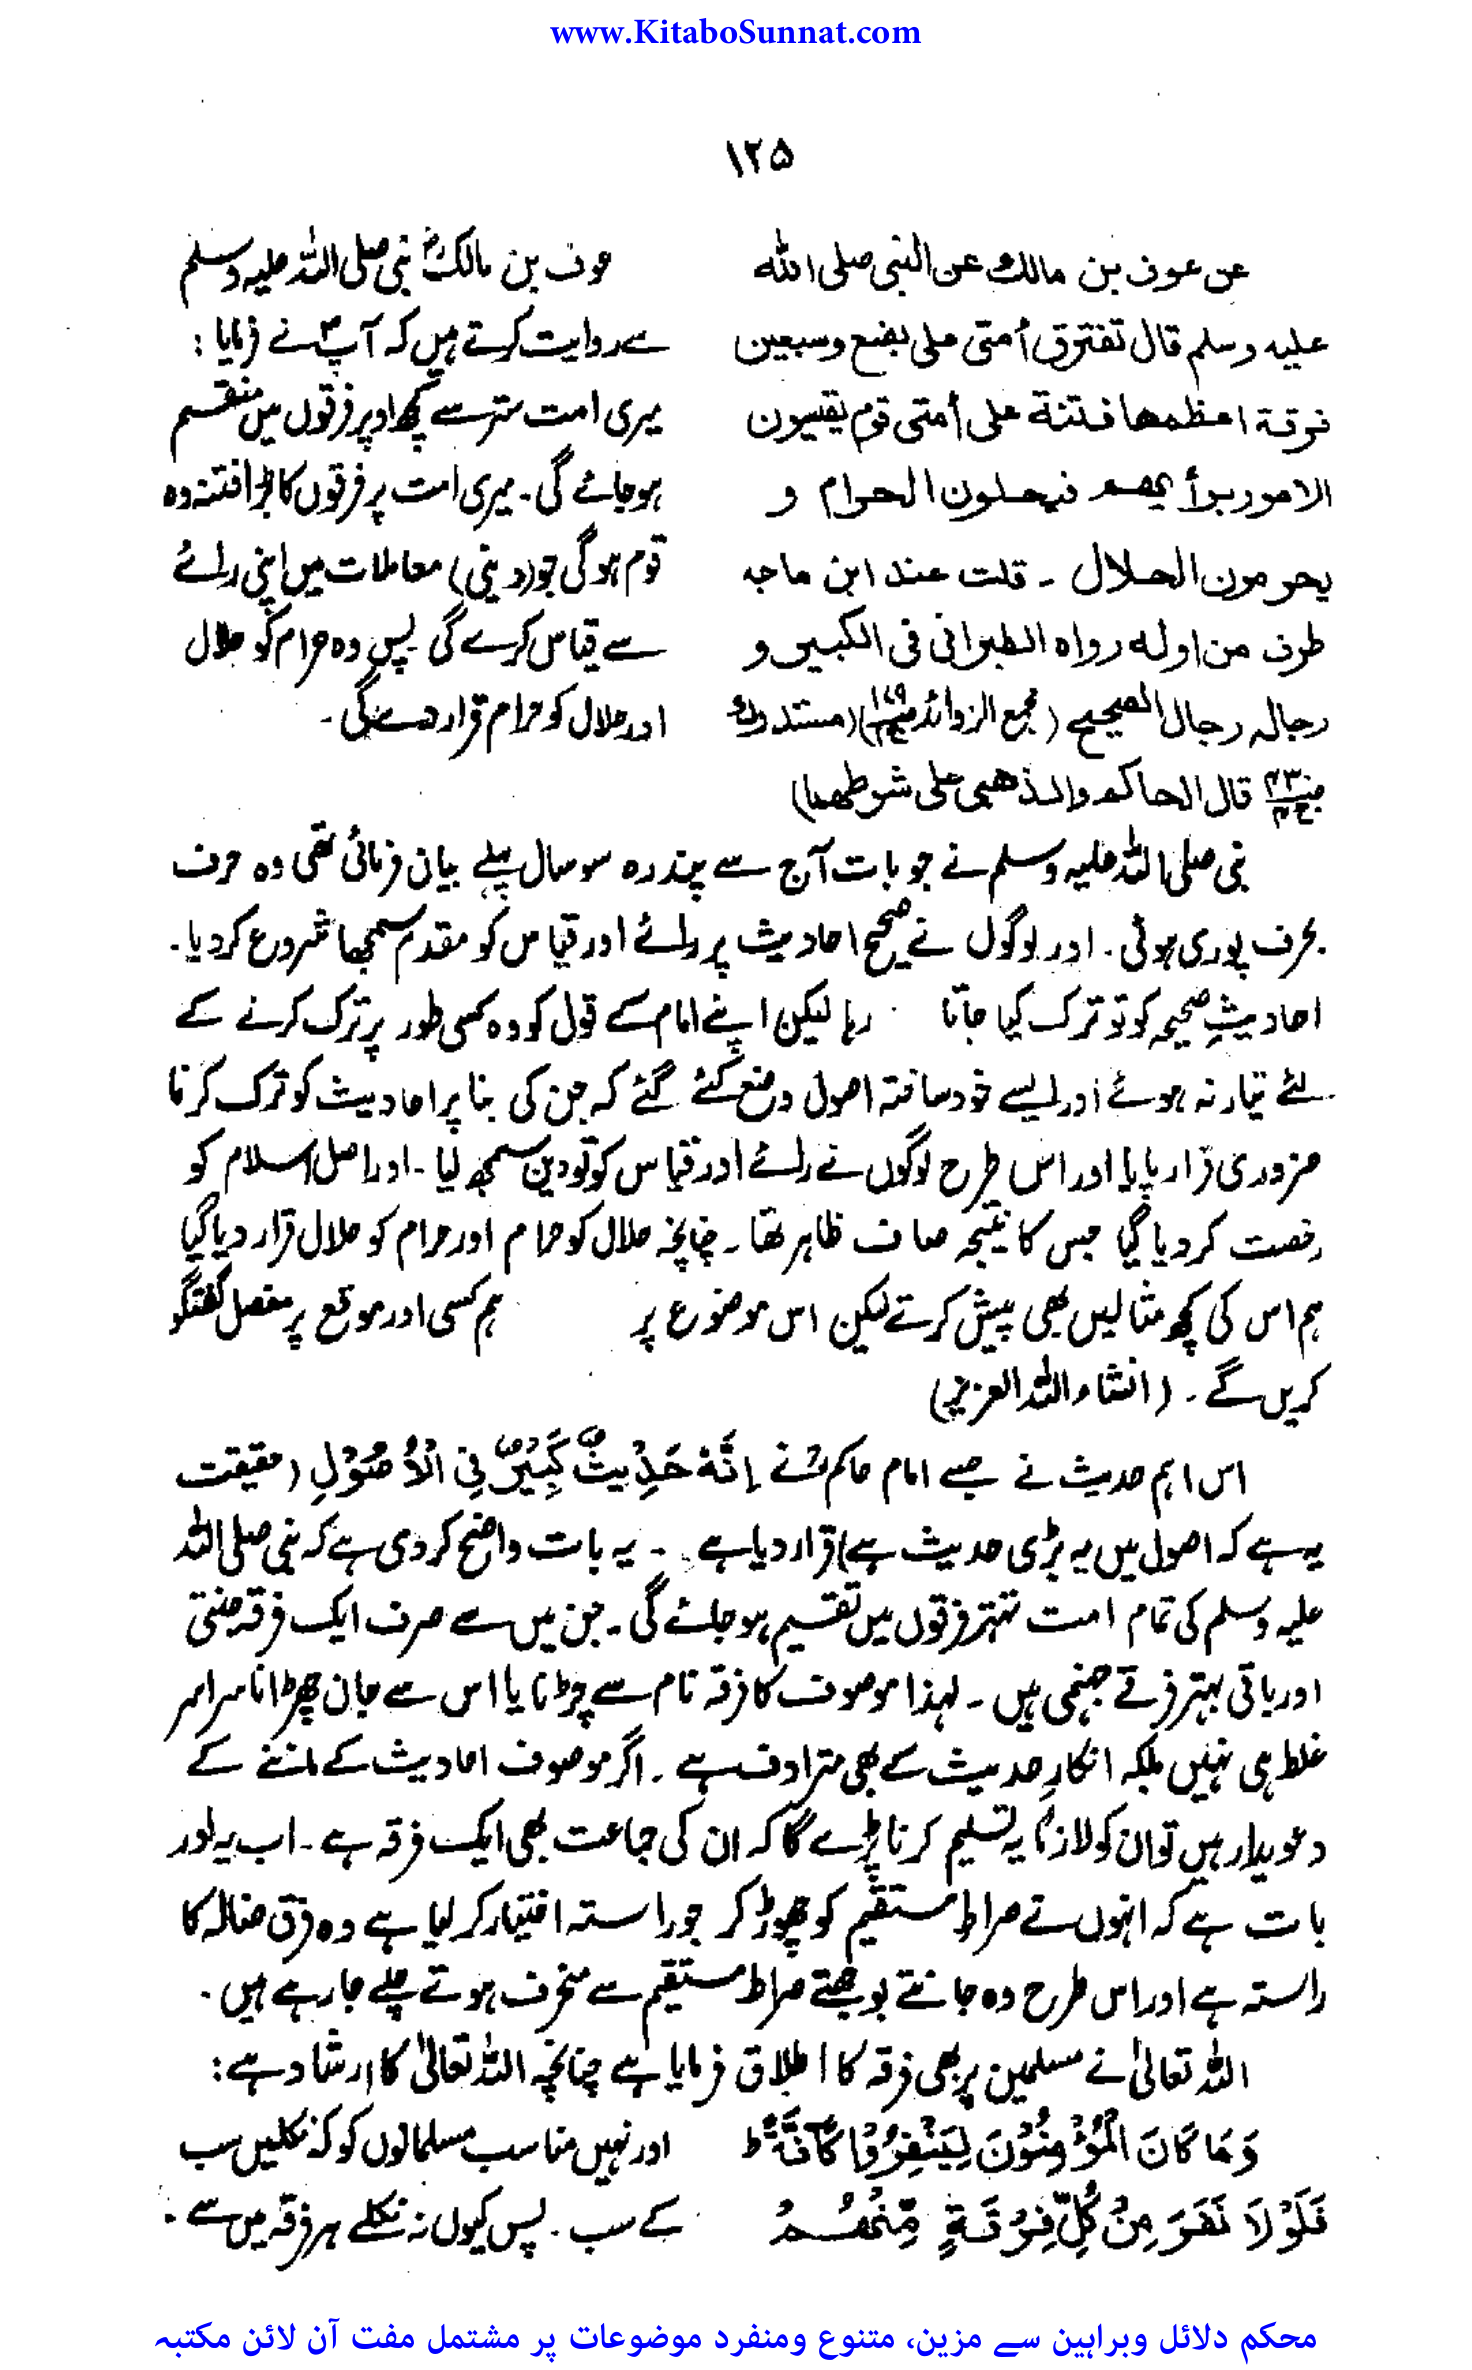 www.KitaboSunnat.com
۱۲۵
عن عوف بن مالك عن النبي صلى الله
عليه وسلم قال تفترق أمتى على بضع وسبعين
فرقة اعظمها فتنة على أمتى قوم يقيسون
الامور برأيهم فيحلون الحرام و
يحرمون الحلال - قلت عند ابن ماجه
طرف من اوله رواه الطبرانى فى الكبير و
رجاله رجال الصحيح (مجمع الزوائد ص۱۷۹ ج۱) (مستدرك
ص۴۳۰ ج۴ قال الحاكم والذهبي على شرطهما)
عوف بن مالکؓ نبی صلی اللہ علیہ وسلم
سے روایت کرتے ہیں کہ آپؐ نے فرمایا :
میری امت ستر سے کچھ اوپر فرقوں میں منقسم
ہو جائے گی۔ میری امت پر فرقوں کا بڑا فتنہ وہ
قوم ہو گی جو (دینی) معاملات میں اپنی رائے
سے قیاس کرے گی پس وہ حرام کو حلال
اور حلال کو حرام قرار دے گی۔
نبی صلی اللہ علیہ وسلم نے جو بات آج سے پندرہ سو سال پہلے بیان فرمائی تھی وہ حرف
بحرف پوری ہوئی۔ اور لوگوں نے صحیح احادیث پر رائے اور قیاس کو مقدم سمجھا شروع کر دیا۔
احادیثِ صحیحہ کو تو ترک کیا جاتا رہا لیکن اپنے امام کے قول کو وہ کسی طور پر ترک کرنے کے
لئے تیار نہ ہوئے اور ایسے خود ساختہ اصول وضع کئے گئے کہ جن کی بنا پر احادیث کو ترک کرنا
ضروری قرار پایا اور اس طرح لوگوں نے رائے اور قیاس کو تو دین سمجھ لیا۔ اور اصل اسلام کو
رخصت کر دیا گیا جس کا نتیجہ صاف ظاہر تھا۔ چنانچہ حلال کو حرام اور حرام کو حلال قرار دیا گیا
ہم اس کی کچھ مثالیں بھی پیش کرتے لیکن اس موضوع پر ہم کسی اور موقع پر مفصل گفتگو
کریں گے۔ (انشاء اللہ العزیز)
اس اہم حدیث نے جسے امام حاکمؒ نے إِنَّهُ حَدِيْثٌ كَبِيْرٌ فِي الْأُصُوْلِ (حقیقت
یہ ہے کہ اصول میں یہ بڑی حدیث ہے) قرار دیا ہے ۔ یہ بات واضح کر دی ہے کہ نبی صلی اللہ
علیہ وسلم کی تمام امت تہتر فرقوں میں تقسیم ہو جائے گی۔ جن میں سے صرف ایک فرقہ جنتی
اور باقی بہتر فرقے جہنمی ہیں۔ لہذا موصوف کا فرقہ نام سے چڑنا یا اس سے جان چھڑانا سراسر
غلط ہی نہیں بلکہ انکارِ حدیث کے بھی مترادف ہے۔ اگر موصوف احادیث کے ماننے کے
دعویدار ہیں تو ان کو لازماً یہ تسلیم کرنا پڑے گا کہ ان کی جماعت بھی ایک فرقہ ہے۔ اب یہ اور
بات ہے کہ انہوں نے صراط مستقیم کو چھوڑ کر جو راستہ اختیار کر لیا ہے وہ فرق ضالہ کا
راستہ ہے اور اس طرح وہ جانتے بوجھتے صراط مستقیم سے منحرف ہوتے چلے جا رہے ہیں۔
اللہ تعالیٰ نے مسلمین پر بھی فرقہ کا اطلاق فرمایا ہے چنانچہ اللہ تعالیٰ کا ارشاد ہے:
وَمَا كَانَ الْمُؤْمِنُوْنَ لِيَنْفِرُوْا كَآفَّةً ط
فَلَوْلَا نَفَرَ مِنْ كُلِّ فِرْقَةٍ مِّنْهُمْ
اور نہیں مناسب مسلمانوں کو کہ نکلیں سب
کے سب۔ پس کیوں نہ نکلے ہر فرقہ میں سے
محکم دلائل وبراہین سے مزین، متنوع ومنفرد موضوعات پر مشتمل مفت آن لائن مکتبہ